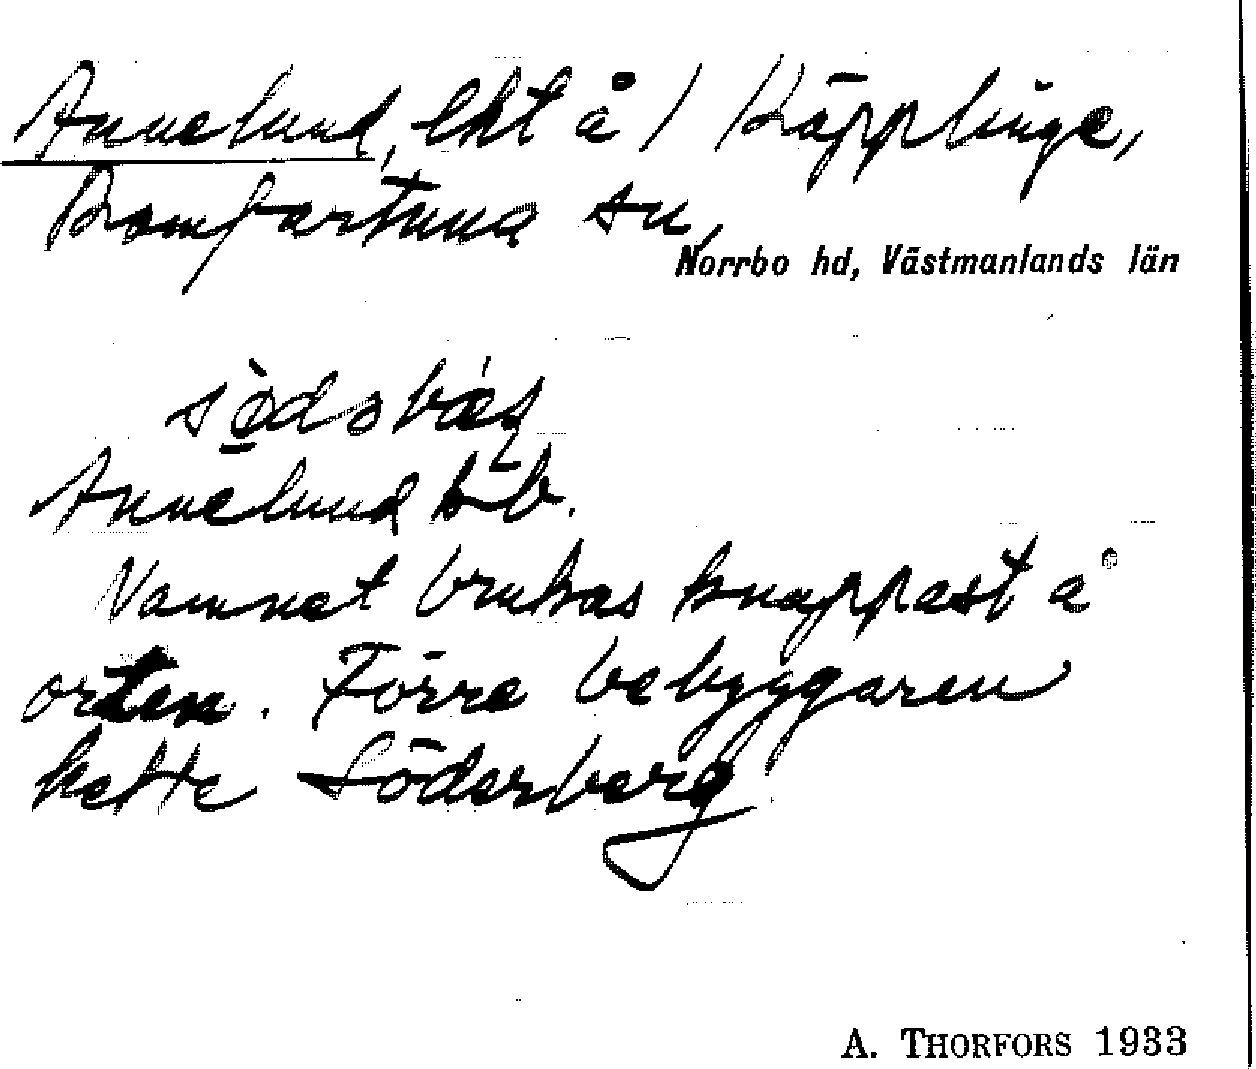 Annelund, lht å / Käpplinge,
Romfartuna sn,
Norrbo hd, Västmanlands län
Annelund kb.
Namnet brukas knappast å
orten. Förre bebyggaren
hette Söderberg
A. THORFORS 1933